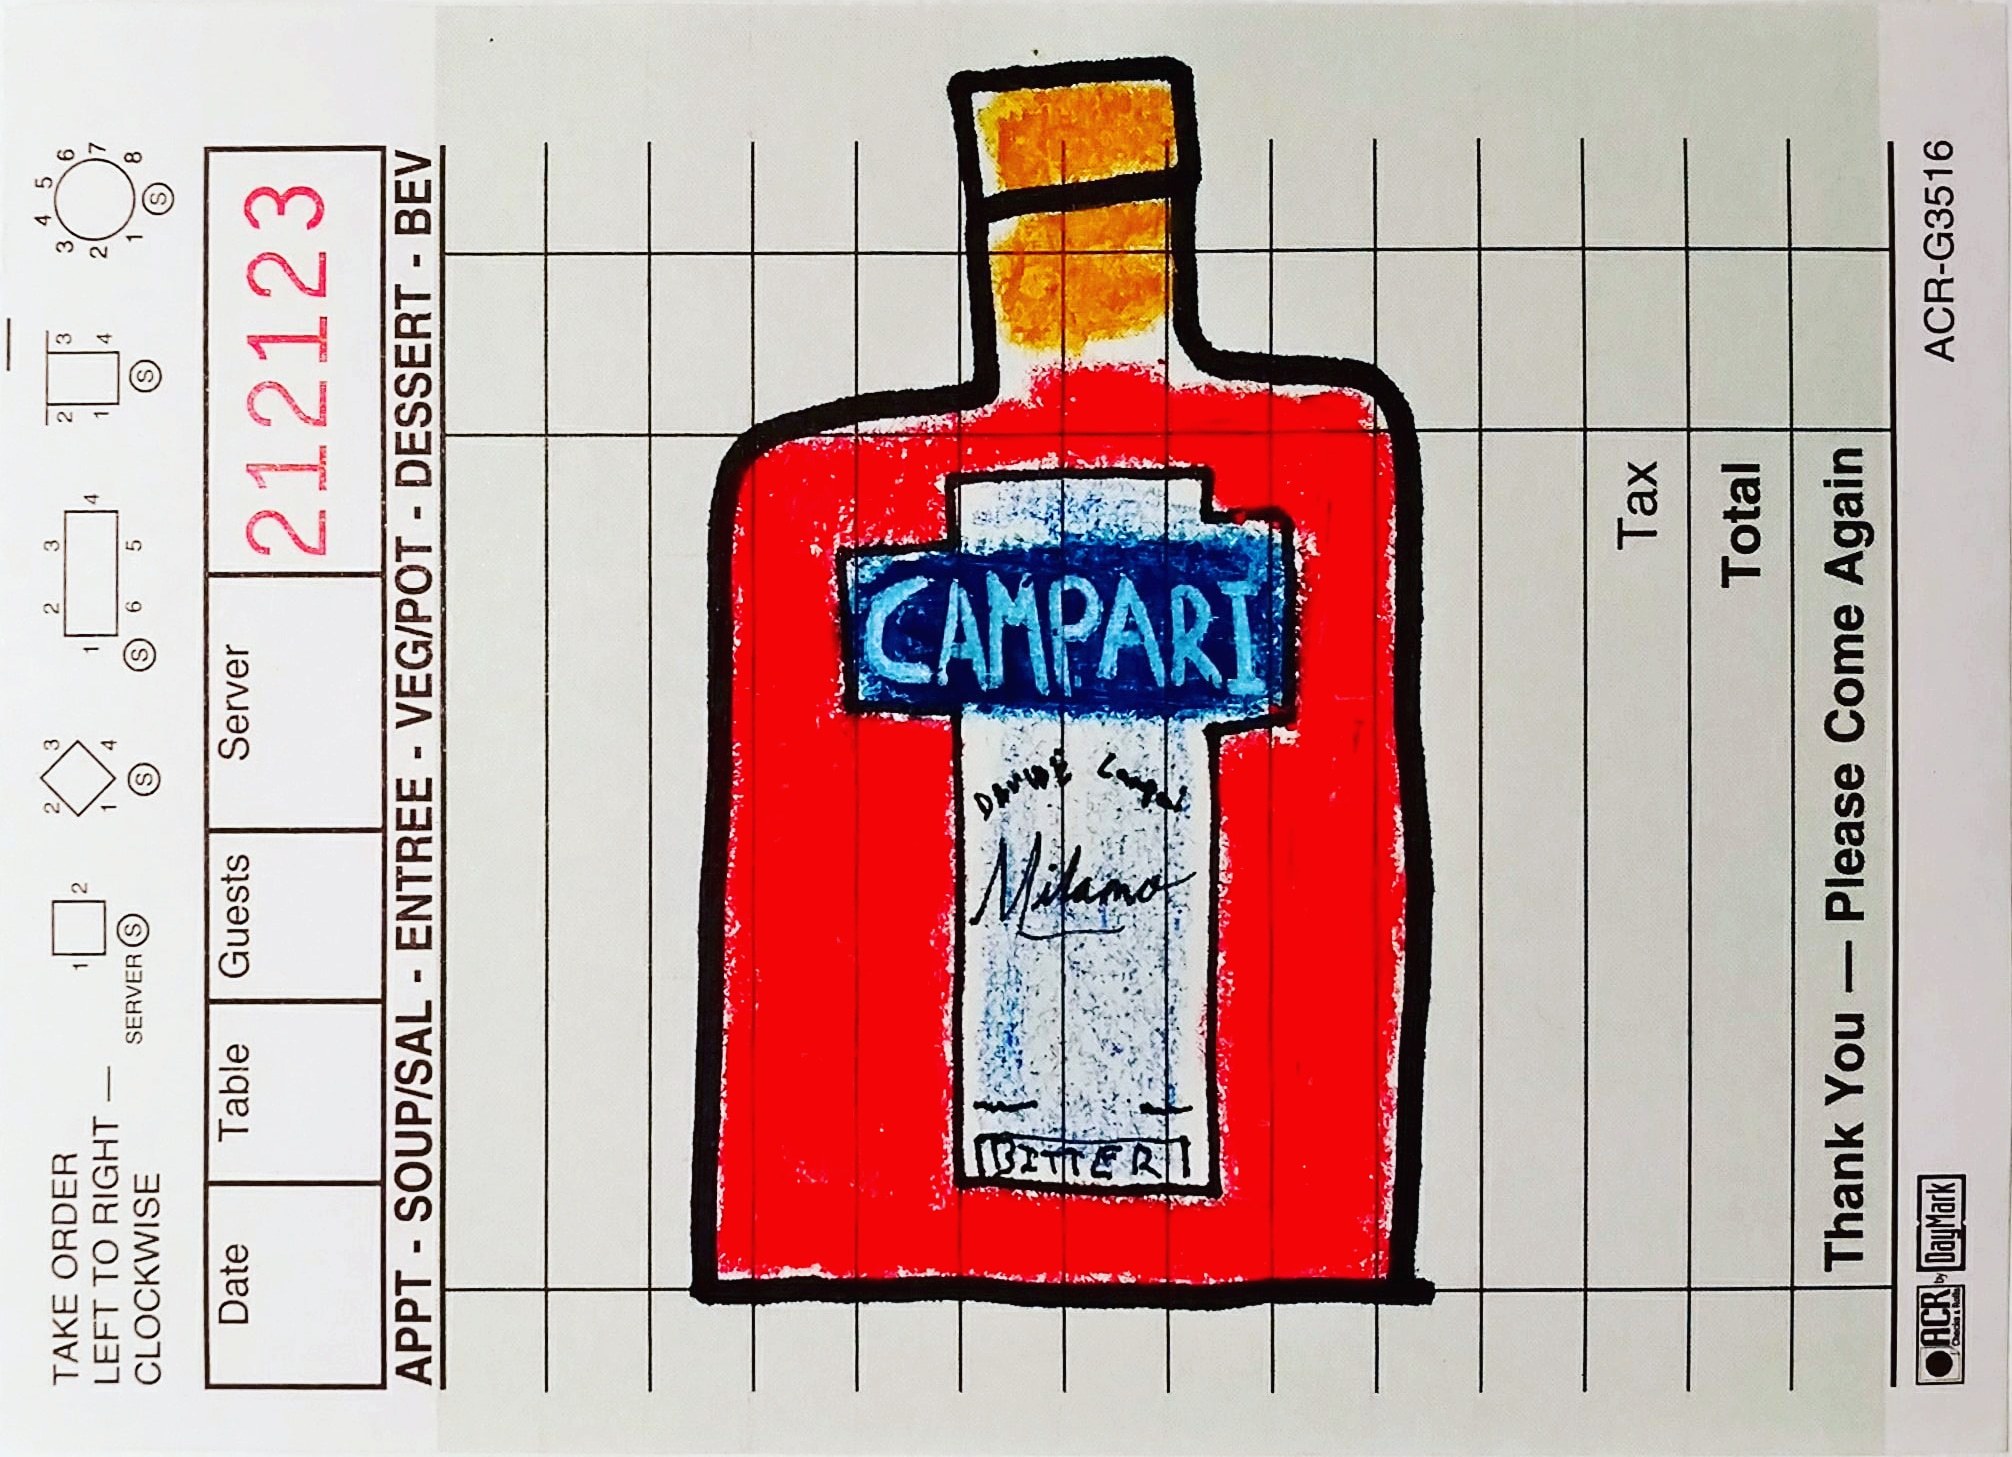 TAKE ORDER
LEFT TO RIGHT —
CLOCKWISE
SERVER S
1 2
1 2 3 4
S
1 2 3 4 5 6
S
1 2 3 4
S
1 2 3 4 5 6 7 8
S
Date Table Guests Server 212123
APPT - SOUP/SAL - ENTREE - VEG/POT - DESSERT - BEV
CAMPARI
DAVIDE
Milano
BITTER
Tax
Total
Thank You — Please Come Again
ACR by DayMark
Checks & Rolls
ACR-G3516